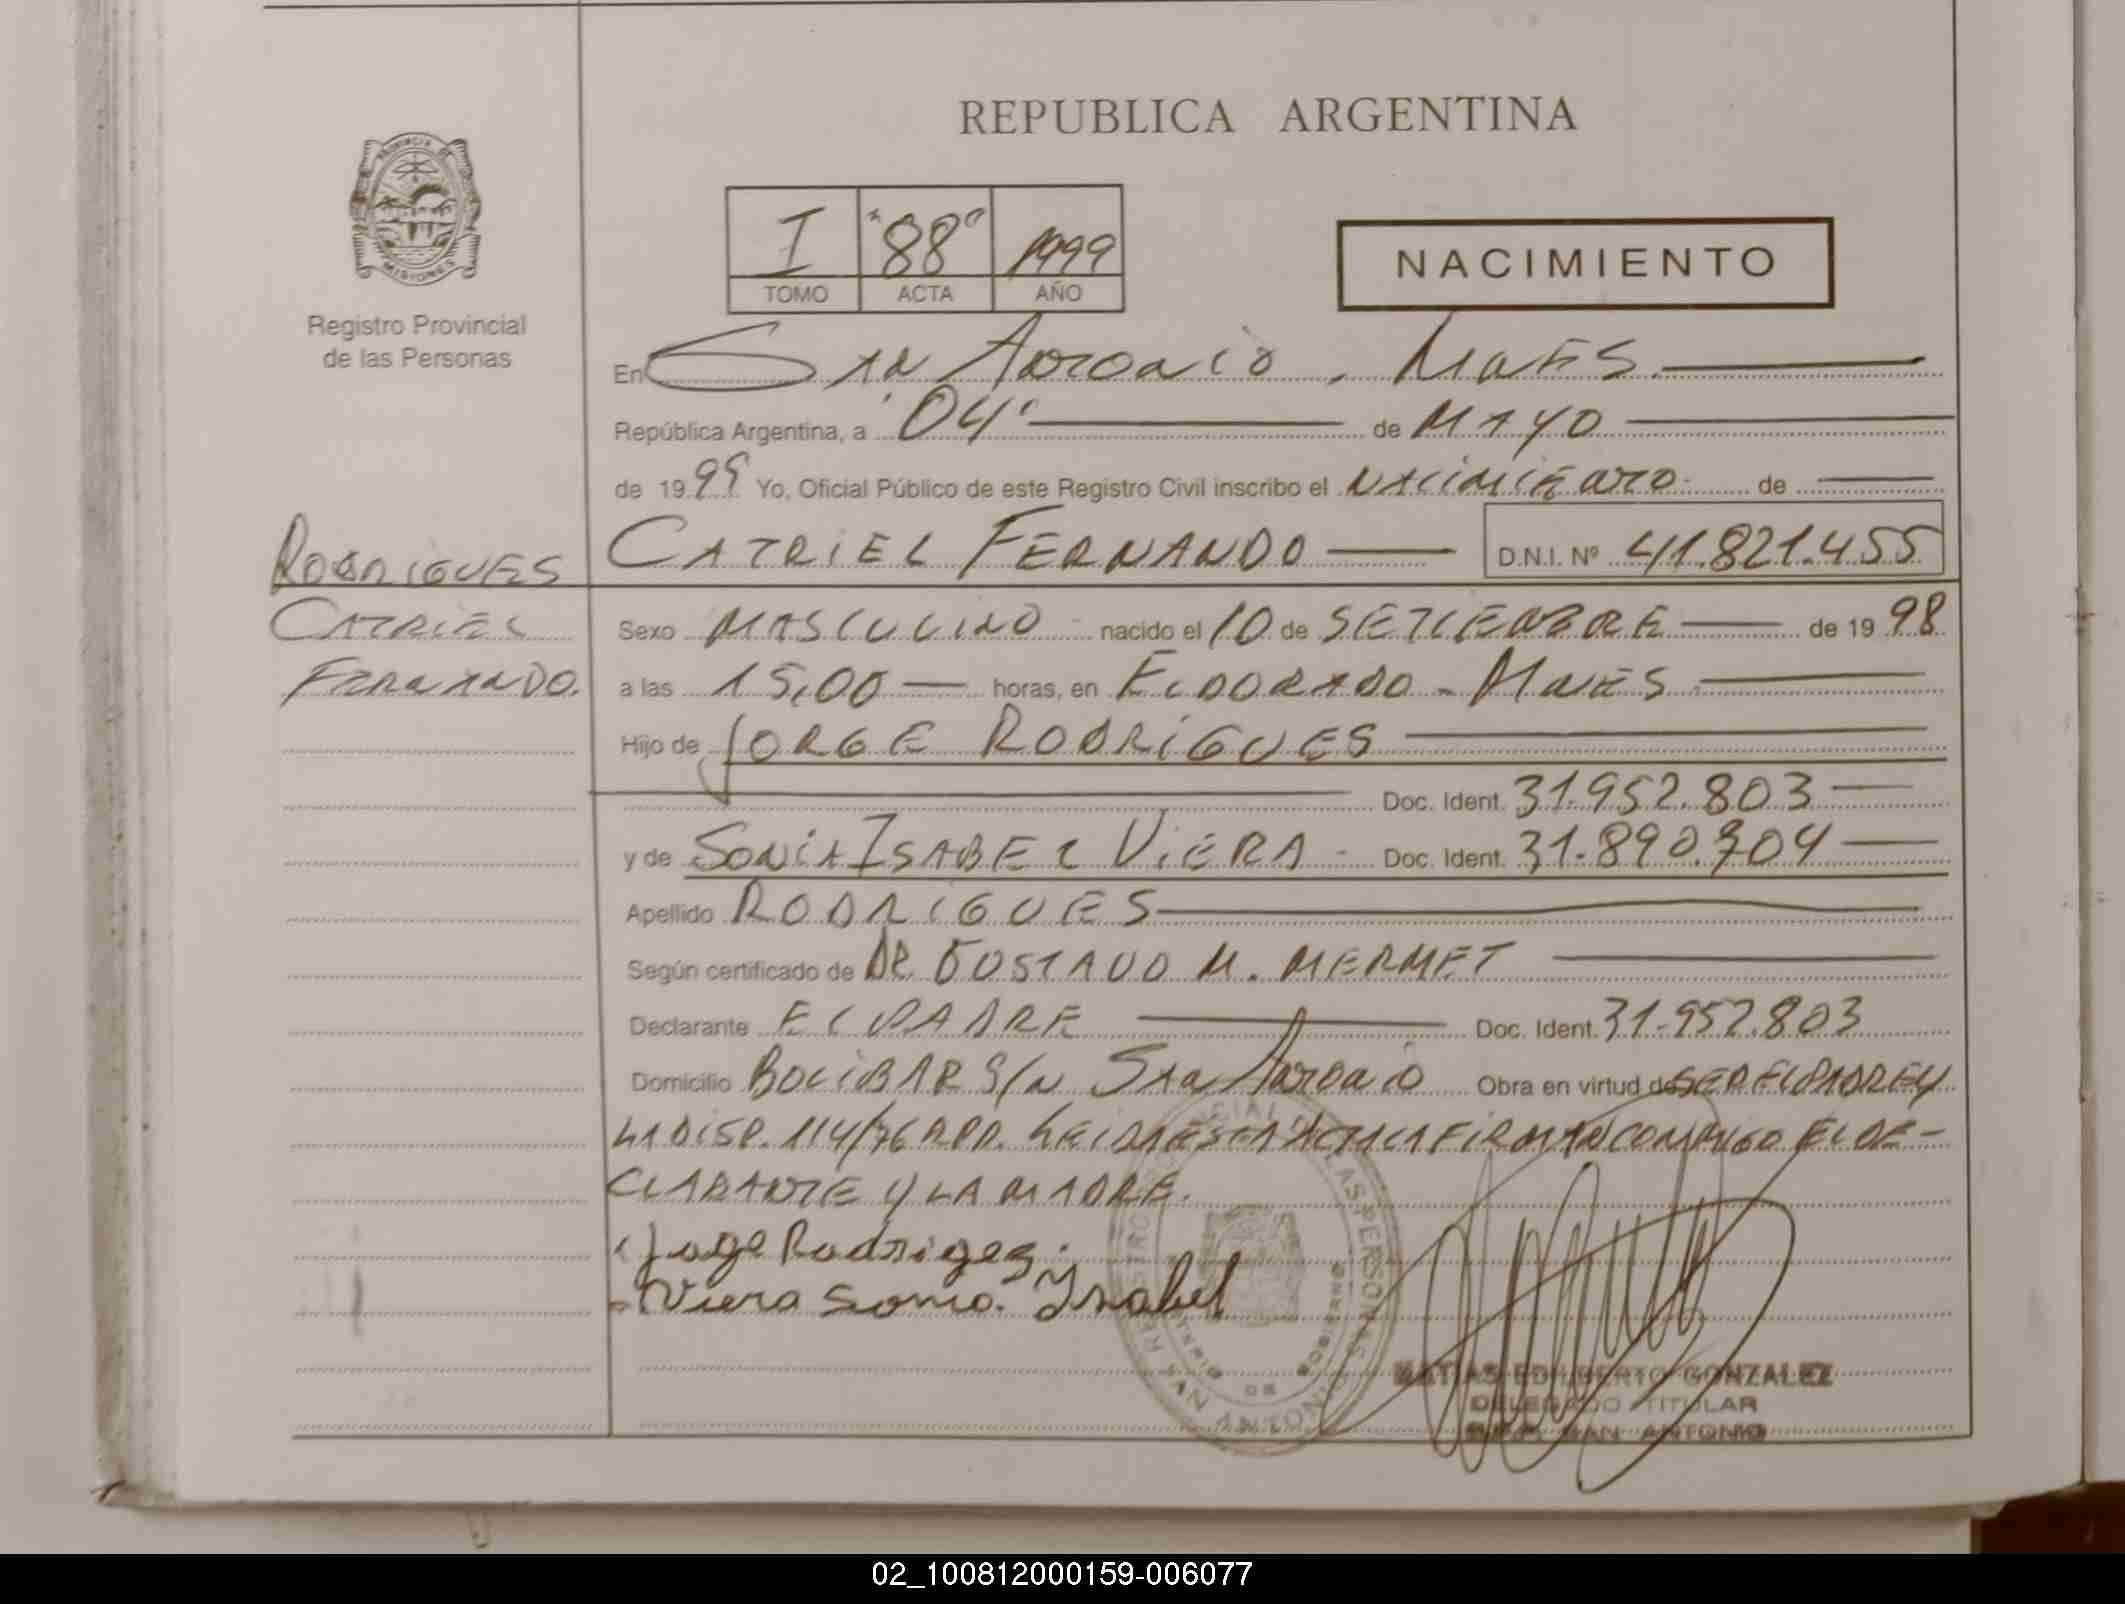 REPUBLICA ARGENTINA
PROVINCIA DE MISIONES
Registro Provincial
de las Personas
I "88" 1999
TOMO ACTA AÑO
NACIMIENTO
En San Antonio, Mnes.
República Argentina, a "04" de MAYO
de 1999 Yo, Oficial Público de este Registro Civil inscribo el NACIMIENTO de
CATRIEL FERNANDO D.N.I. Nº 41.821.455
RODRIGUES
CATRIEL
FERNANDO.
Sexo MASCULINO nacido el 10 de SETIEMBRE de 1998
a las 15,00 horas, en ELDORADO - MNES.
Hijo de JORGE RODRIGUES
Doc. Ident. 31.952.803
y de SONIA ISABEL VIERA - Doc. Ident. 31.890.704
Apellido RODRIGUES
Según certificado de DR. GUSTAVO M. MERMET
Declarante EL PADRE Doc. Ident. 31.952.803
Domicilio BOLIBAR S/N SAN ANTONIO Obra en virtud de SER EL PADRE Y
LA DISP. 114/76 RPP. LEIDA ESTA ACTA LA FIRMAN CONMIGO EL DE-
CLARANTE Y LA MADRE.
Joge Rodriges.
Viera Sonia. Ysabel
REGISTRO PROVINCIAL DE LAS PERSONAS
SAN ANTONIO
MATIAS EDILBERTO GONZALEZ
DELEGADO TITULAR
R.P.P. SAN ANTONIO
02_100812000159-006077